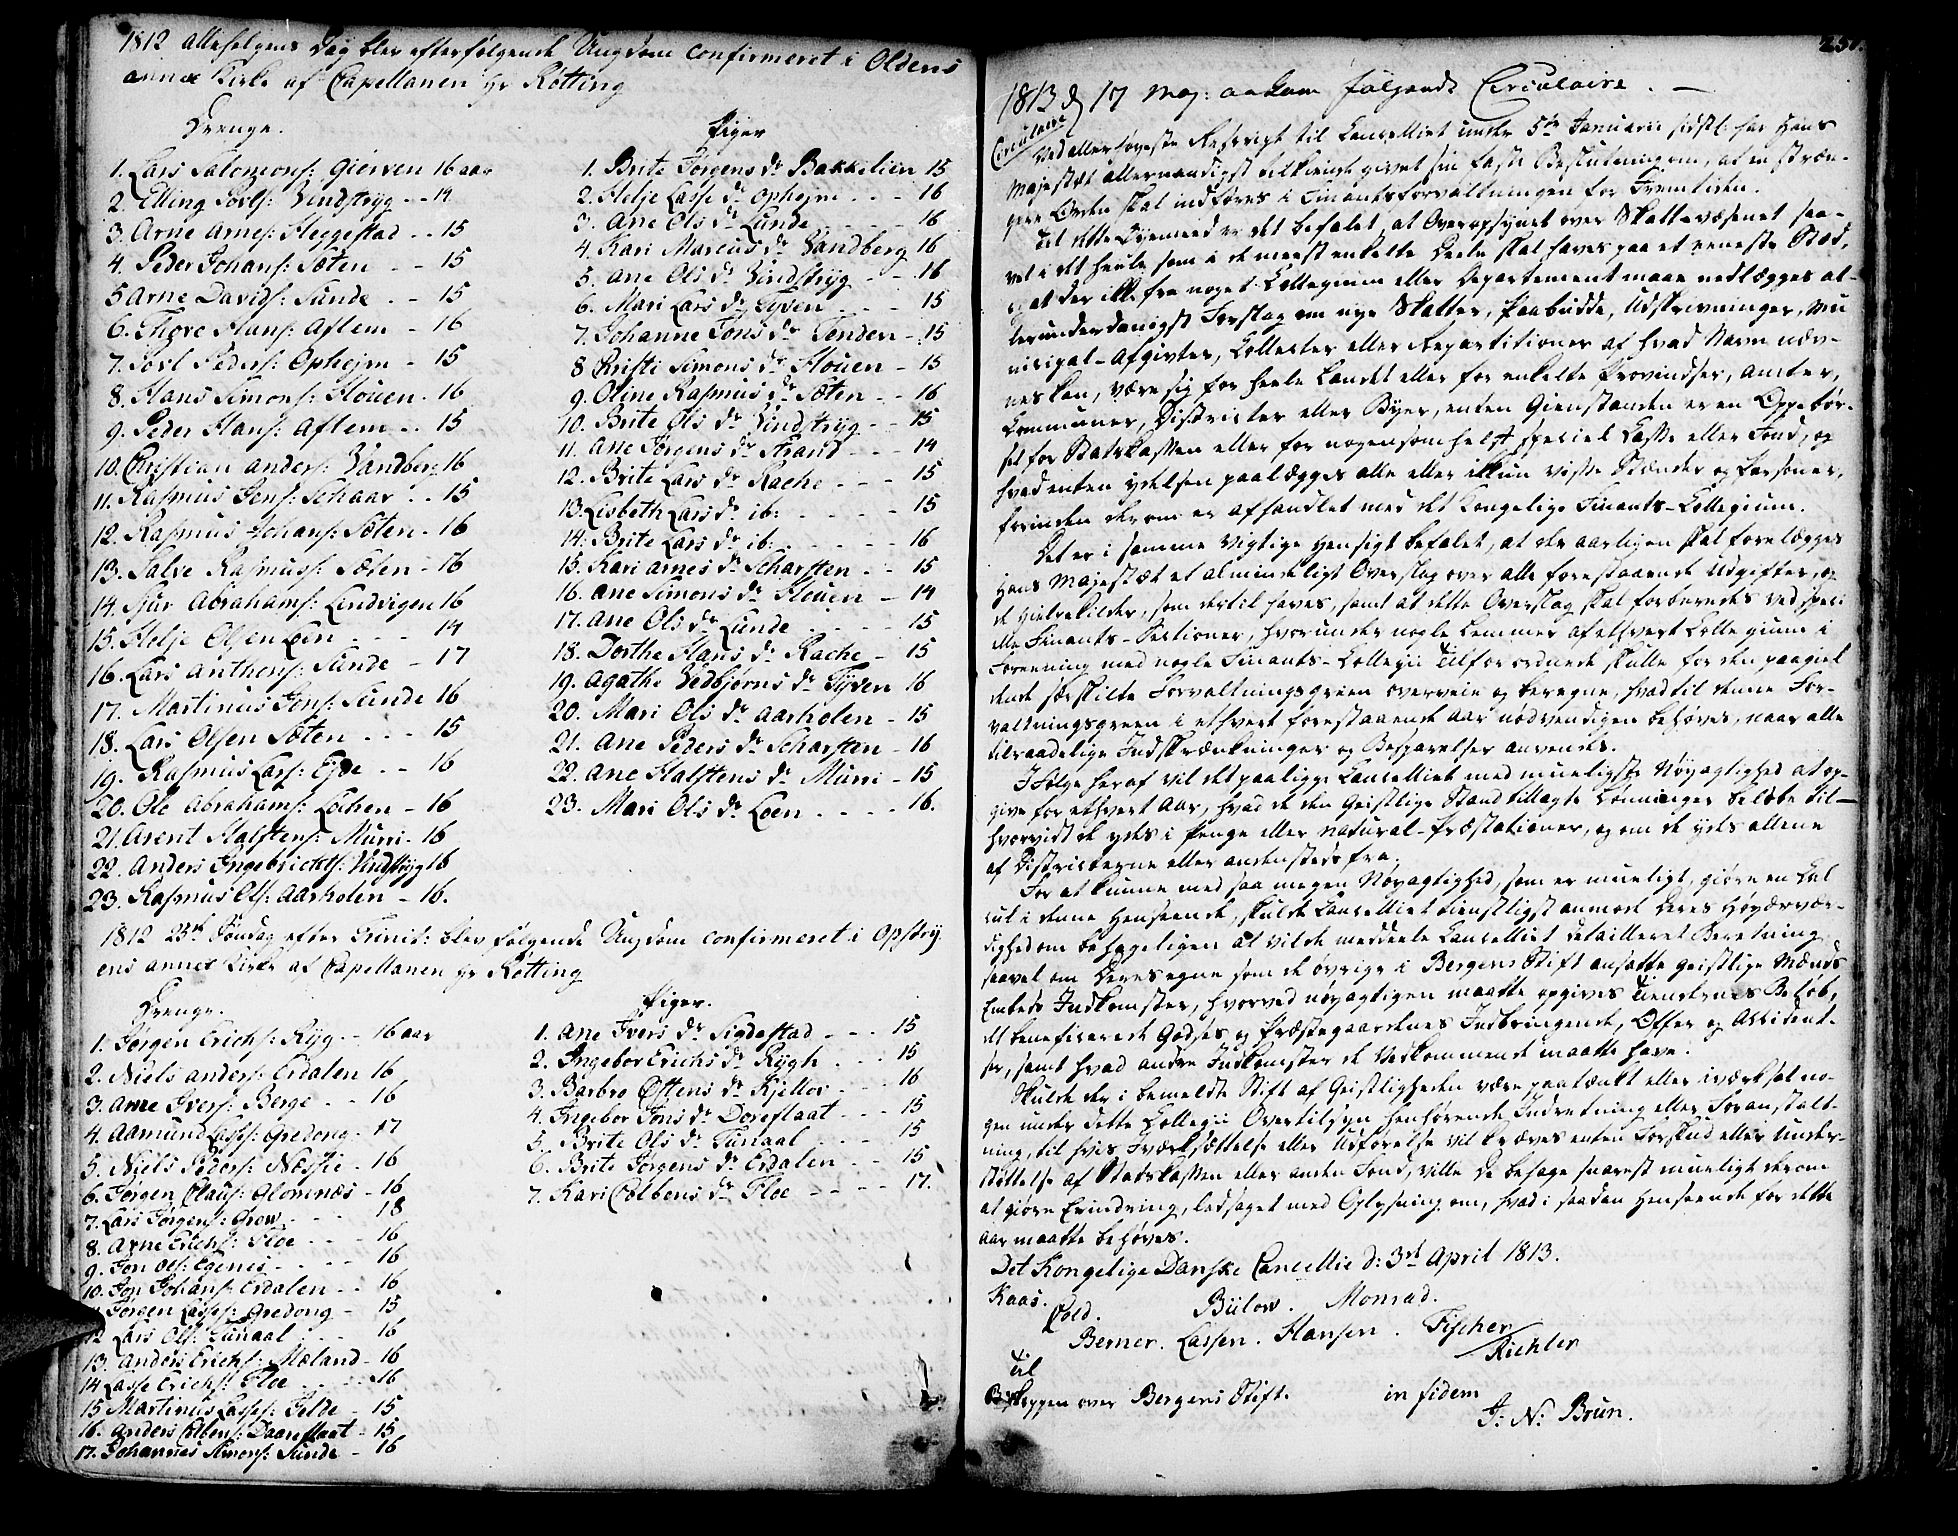 1812 allehelgens Dag blev efterfølgende Ungdom confirmeret i Oldens
annex Kirke af Capellanen Hr Røtting
Drenge.
1. Lars Salomons: Gierven 16 aar
2. Elling Povls: Vindstryg - - 14
3. Arne Arnes: Heggestad - - 15
4. Peder Johans: Sæten - - 15
5 Arne Davids: Sunde - - 15
6. Thore Hans: Aflem - - 16
7. Povl Peders: Ophejm - 15
8. Hans Simons: Houen - 16
9. Peder Hans: Aflem - - 15
10. Christian anders: Vandberg 16
11. Rasmus Jens: Schaar - - 15
12. Rasmus Johans: Sæten - 16
13. Salve Rasmuss: Sæten - 16
14. Siur Abrahams: Lindvigen 16
15. Helje Olsen Loen - - - 14
16. Lars anthons: Sunde - 17
17. Martinus Jons: Sunde 16
18. Lars Olsen Sæten - - - 15
19. Rasmus Lars: Ejde - - 16
20. Ole Abrahams: Lochen - 16
21. Arent Halstens: Murri - 16
22. Anders Ingebrichts: Vindstryg 16
23. Rasmus Ols: Aarholen - 16.
Piger
1. Brite Jørgens Dr Bakkelien 15
2. Helje Lasse Dr Ophejm - - - 16
3. Ane Ols Dr Lunde - - - 16
4. Kari Marcus Dr Vandberg 16
5. Ane Ols Dr Vindstryg - - 16
6. Mari Lars Dr Tiven - - - 15
7. Johanne Jons Dr Tenden - 15
8 Kristi Simons Dr Houen - 15
9. Oline Rasmus Dr Sæten - - 16
10. Brite Ols Dr Vindstryg - - 15
11. Ane Jørgens Dr Strand - - - 14
12. Brite Lars Dr Rache - - - 15
13. Lisbeth Lars Dr ib: - - - - 15
14. Brite Lars Dr ib: - - - - 16
15. Kari arnes Dr Scharsten - - 15
16. Ane Simons Dr Houen - 14
17. Ane Ols Dr Lunde - - - - 15
18. Dorthe Hans Dr Rache - 15
19. Agathe Vedbjørns Dr Tijven 16
20. Mari Ols Dr Aarholen - 15
21. Ane Peders Dr Scharsten - 16
22. Ane Halstens Dr Murri - 15
23. Mari Ols Dr Loen - - - - 16.
1812 23de Søndag efter Trinit: blev følgende Ungdom confirmeret i Opstry
ens annex Kirke af Capellanen Hr Røtting
Drenge.
1. Jørgen Erichs: Ryg - - 16 aar
2. Niels anders: Erdalen 16
3. Arne Ivers: Berge - - 16
4. Aamund Lasses: Grødong - 17
5. Niels Peders: Næssie - 16
6. Jørgen Olaus: Glomnæs - 16
7. Lars Jørgens: Grov - - - 18
8. Arne Erichs: Floe - - - 16
9. Jon Ols: Egenes - - - - 16
10. Jon Johans: Erdalen - - 16
Jørgen Lasses: Grødong - 15
12 Lars Ols: Sunaal - - - 16
13. Anders Erichs: Mæland - 16
14 Lasse Erichs: Floe - - - 16
15 Martinus Lasses: Tilde - 15
16. Anders Colbens: Daareflaat - 15
17. Johannes Simons: Sunde - 16
Piger.
1. Ane Ivers Dr Sigdestad - - - 15
2. Ingebor Erichs Dr Rygh - - - 15
3. Barbro Østens Dr Kjellor - - - 16
4. Ingebor Jons Dr Doreflaat - - - 15
5. Brite Ols Dr Sunaal - - - - 15
6. Brite Jørgens Dr Erdalen - - - 15
7. Kari Colbens Dr Floe - - - - 17.
1813 D 17 Maj: ankom følgende Circulaire. -
Circulaire
Ved allerhøyeste Rescript til Cancelliet under 5te Januarii sidstl: har Hans
Majestæt allernaadigst tilkiende givet sin faste Beslutning om, at en stræn-
gere Orden skal indføres i Finantsforvaltningen for Fremtiden.
Til dette Øyemeed er det befalet, at Overopsynet over Skattevæsenet saa-
vel i det heele som i de meest enkelte Deele skal haves paa et eneste Sted,
og at der ikke fra noget Collegium eller Departement maae nedlægges al-
lerunderdanigst Forslag om nye Skatter, Paabudde, Udskrivninger, Mu
nicipal-Afgivter, Collecter eller Repartitioner af hvad Navn næv-
nes kan, være sig for heele Landet eller for enkelte Provindser, Amter,
Communer, Districter eller Byer, enten Gienstanden er en Oppebør-
sel for Statskassen eller for nogensomhelst speciel Casse eller Fond, og
hvad enten Ydelsen paalægges alle eller ikkun visse Stænder og Personer,
forinden derom er afhandlet med det Kongelige Finants-Collegium.
Det er i samme vigtige Hensigt befalet, at der aarligen skal forelægges
Hans Majestæt et almindeligt Overslag over alle forestaaende Udgifter, og
de Hielpekilder, som dertil haves, samt at dette Overslag skal forberedes ved speci
elle Finants-Sectioner, hvorunder nogle Lemmer af ethvert Collegium i
Foreening med nogle Finants-Collegii Tilforordnede skulle for den paagiel
dende særskilte Forvaltningsgreen overveie og beregne, hvad til denne For-
valtningsgreen i ethvert forestaaende Aar nødvendigen behøves, naar alle
tilraadelige Indskrænkninger og Besparelser anvendes.
I Følge heraf vil det paaligge Cancelliet med mueligste Nøyagtighed at op-
give for ethvert Aar, hvad de den Geistlige Stand tillagte Lønninger beløbe til -
hvorvidt de ydes i Penge eller Natural-Præstationer, og om de ydes allene
af Districterne eller andenstedsfra.
For at kunne med saa megen Nøyagtighed, som er mueligt, giøre en Cal
cul i denne Henseende, skulde Cancelliet tienstligst anmode Deres Høyærvær-
dighed om behageligen at vilde meddeele Cancelliet detailleret Beretning
saavel om Deres egne som de øvrige i Bergens Stift ansatte Geistlige Mænds
Embeds Indkomster, hvorved nøyagtigen maatte opgives Tiendernes Beløb,
det beneficerede Godses og Præstegaardenes Indbringende, Offer og Accident-
ser, samt hvad andre Indkomster de Vedkommende maatte have.
Skulde der i bemeldte Stift af Geistligheden være paatænkt eller iværksat no-
gen under dette Collegii Overtilsyn henhørende Indretning eller Foranstalt-
ning, til hvis Iværksættelse eller Udførelse vil kræves enten Forskud eller Under-
støttelse af Statskassen eller anden Fond, ville De behage snarest mueligt derom
at giøre Erindring, ledsaget med Oplysning om, hvad i saadan Henseende for dette
Aar maatte behøves.
Det Kongelige Danske Cancellie d: 3de April 1813.
Kaas. Cold. Bülow. Monrad.
Berner. Lassen. Hansen. Fischer
Richter
Til
Biskoppen over Bergens Stift. in fidem
J: N: Brun.